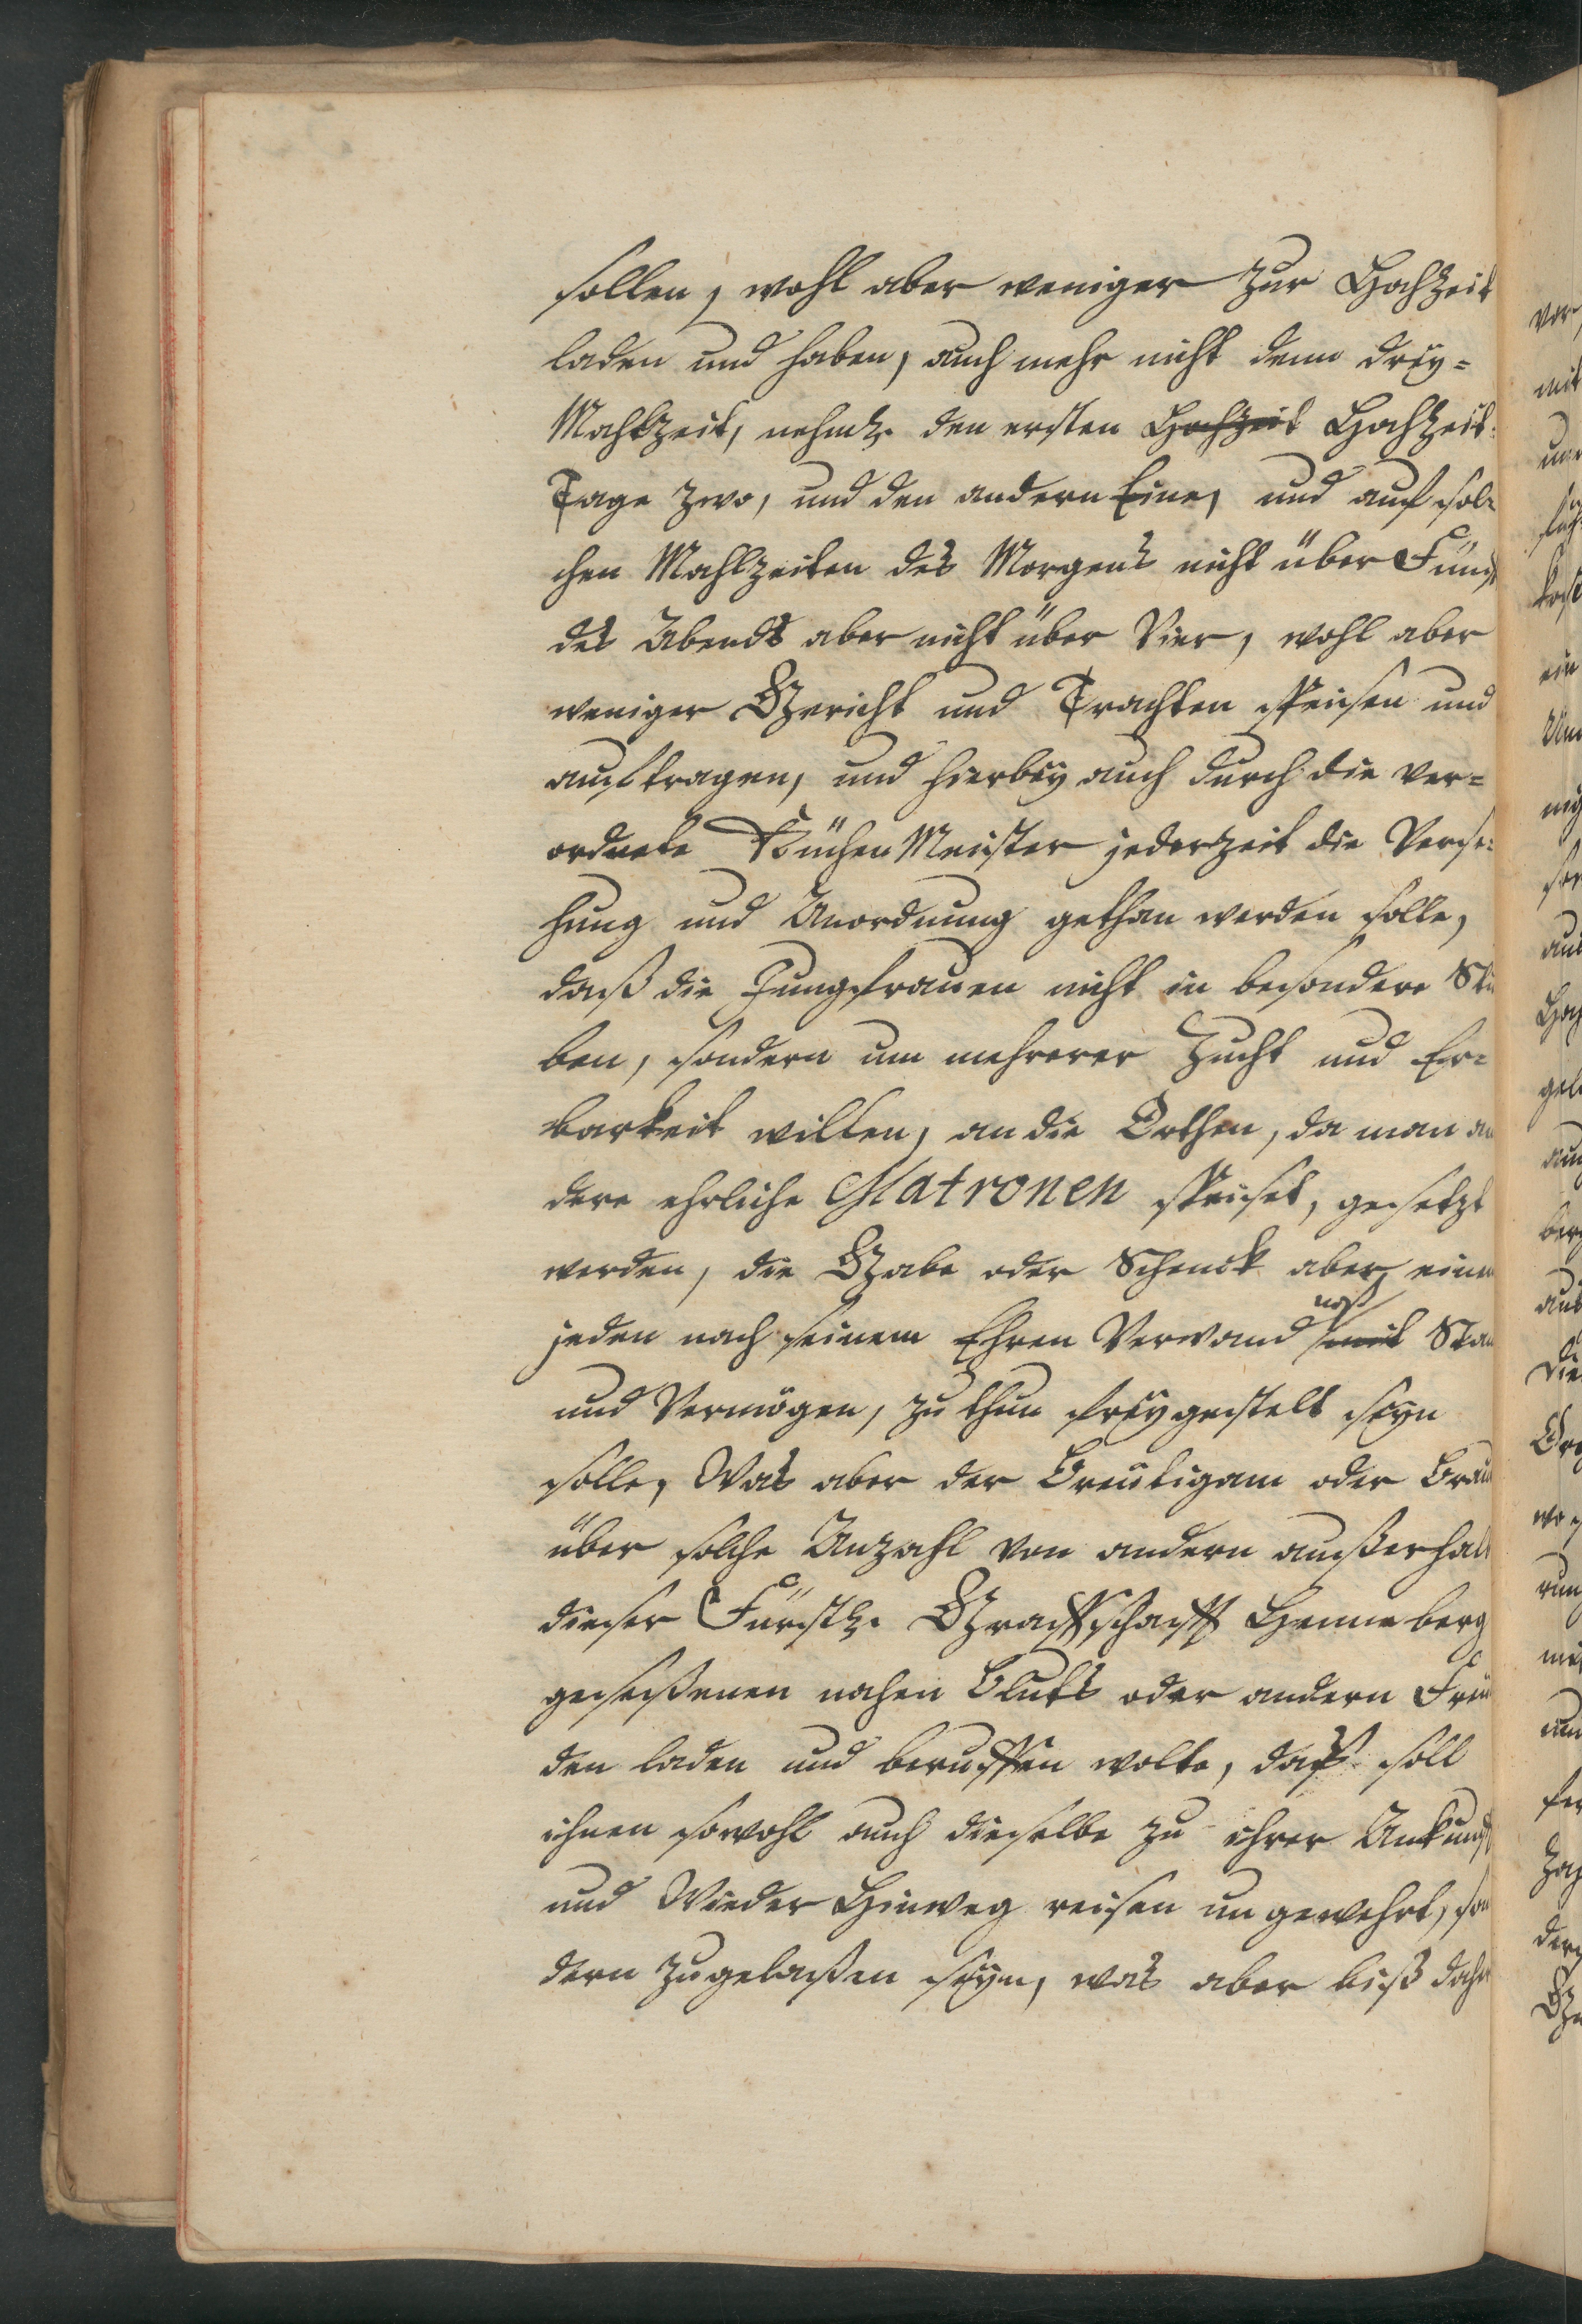 sollen, wohl aber weniger zur Hochzeit
laden und haben, auch mehr nicht denn drey=
Mahlzeit, nehml. den ersten Hochzeit Hochzeit=
Tage zwo, und den andern Eine, und auf sol=
chen Mahlzeiten des Morgens nicht über Fünf
des Abends aber nicht über Vier, wohl aber
weniger Gericht und Trachten speisen und
auftragen, und hierbey auch durch die ver=
ordnete Küchen Meister jederzeit die Verse=
hung und Anordnung gethan werden solle,
daß die Jungfrauen nicht in besondere Stu
ben, sondern um mehrerer Zucht und Er=
barkeit willen, an die Orthen, da man an
dere ehrliche Matronen speiset, gesetzt
werden, die Gabe oder Schenck aber einem
noß
jeden nach seinem Ehren Verwand mit Stan
und Vermögen, zu thun frey gestelt seyn
solle, Was aber der Breutigam oder Braut
über solche Anzahl von andern außerhalb
dieser Fürstl. Graffschafft Henneberg
geseßenen nahen Bluts oder andern Freu
den laden und beruffen wolte, daß soll
ihnen sowohl auch dieselbe zu ihrer Ankunft
und Wieder Hinweg reisen un gewehrt, son
dern zugelaßen seyn, was aber biß daher